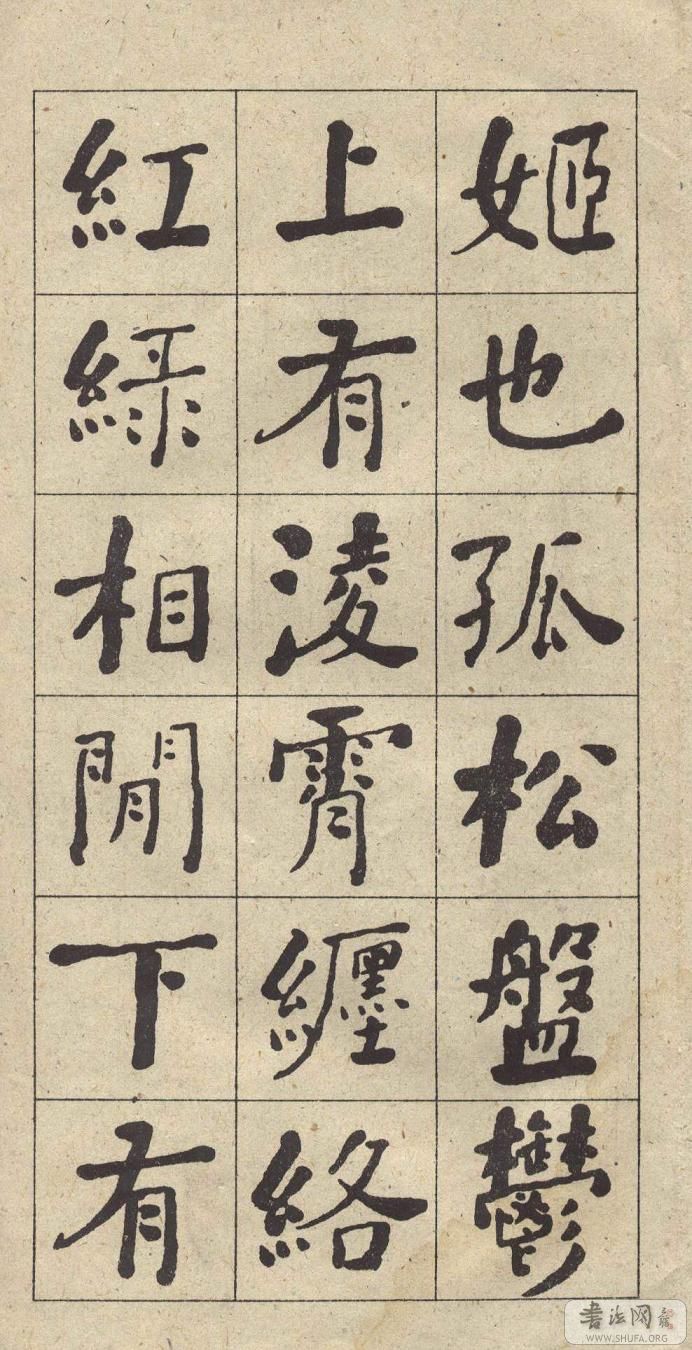 姬也孤松盤鬱
上有淩霄纏絡
紅綠相間下有
書法网
WWW.SHUFA.ORG